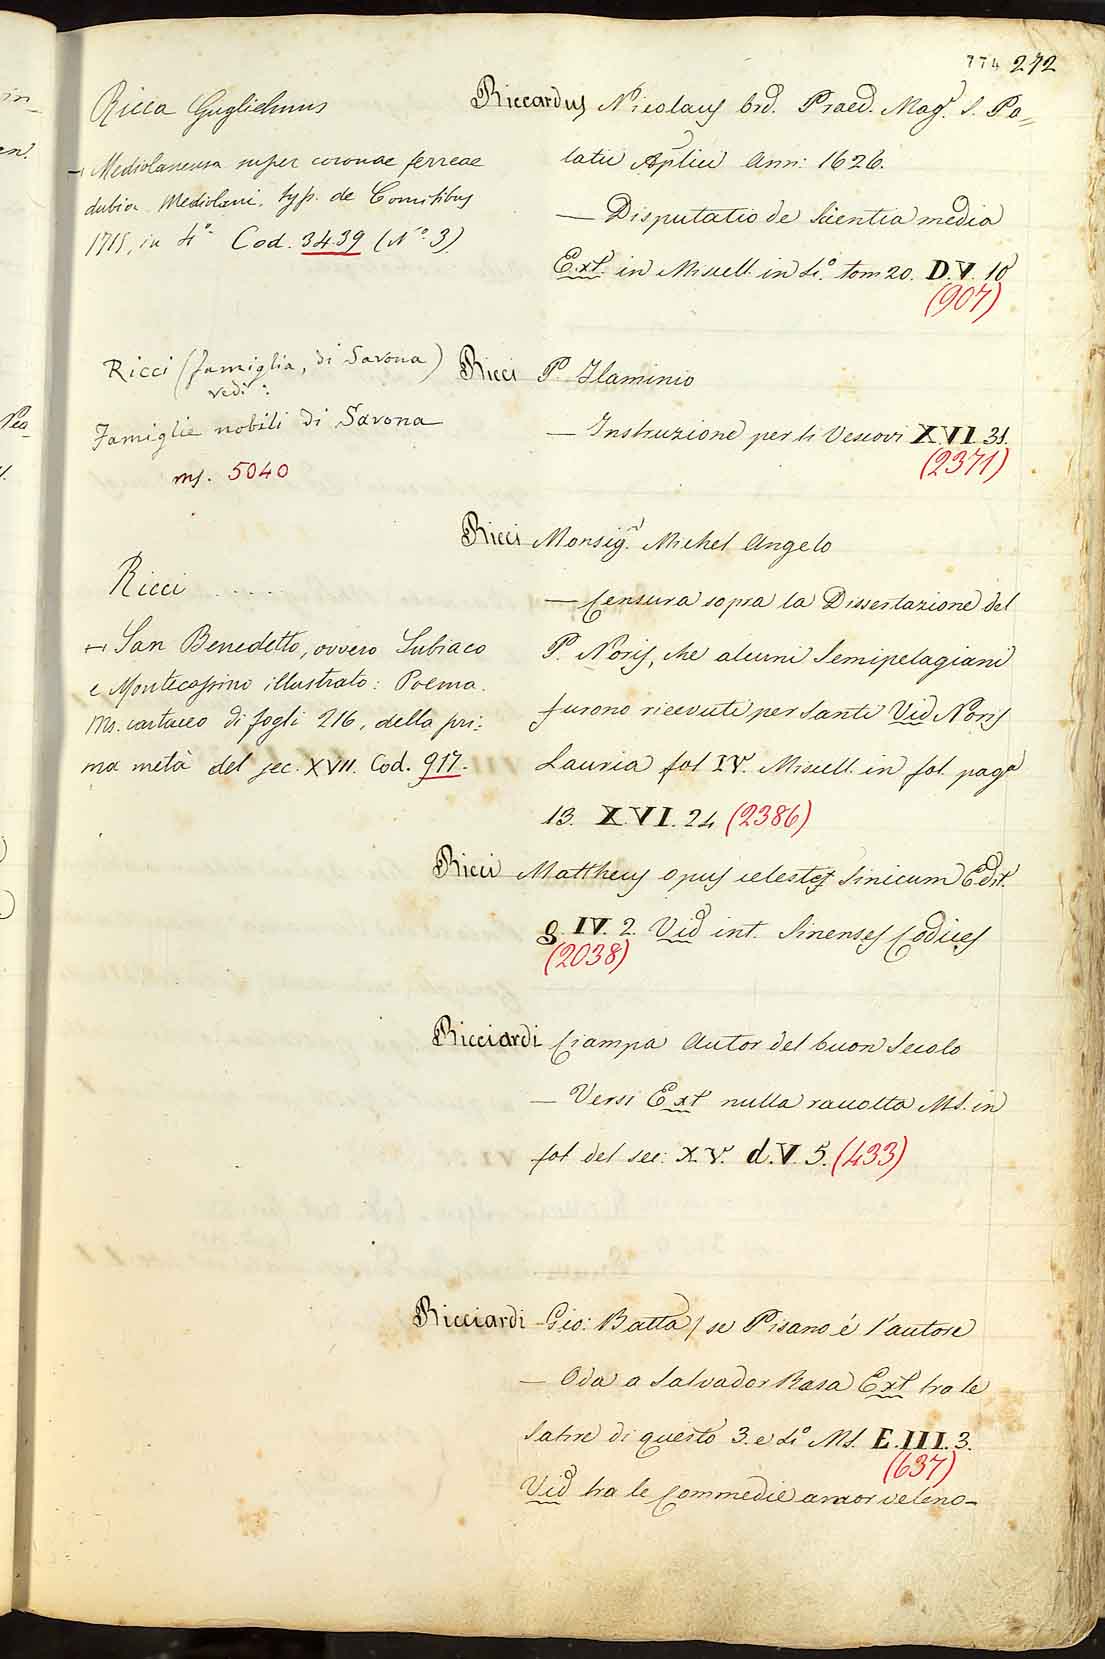 774 272
Ricca Guglielmus
— Mediolanensia super coronae ferreae
dubia. Mediolani, typ. de Comitibus
1715, in 4°. Cod. 3439 (N°. 3).
Ricci (famiglia, di Savona)
vedi:
Famiglie nobili di Savona
ms. 5040
Ricci .....
— San Benedetto, ovvero Subiaco
e Montecassino illustrato: Poema.
Ms. cartaceo di fogli 216, della pri=
ma metà del sec. XVII. Cod. 917.
Riccardus Nicolaus Ord. Praed. Mag.r S. Pa=
latii Aplici Ann: 1626.
— Disputatio de Scientia media
Ext. in Miscell. in 4.° tom 20. D.V. 10
(907)
Ricci P. Flaminio
— Instruzione per li Vescovi XVI 31.
(2371)
Ricci Monsig.r Michel Angelo
— Censura sopra la Dissertazione del
P. Noris, che alcuni Semipelagiani
furono ricevuti per Santi Vid Noris
Lauria fol IV. Miscell. in fol. pag.a
13. XVI. 24 (2386)
Ricci Mattheus opus celeste Sinicum Edit.
g. IV. 2. Vid int. Sinenses Codices
(2038)
Ricciardi Ciampa Autor del buon Secolo
— Versi Ext nulla raccolta MS. in
fol del sec: X.V. d.V. 5. (433)
Ricciardi Gio: Batta / se Pisano é l'autore
— Oda a Salvador Rosa Ext tra le
Satire di questo 3. e 4.° MS. E.III. 3.
(637)
Vid tra le Commedie amor veleno-